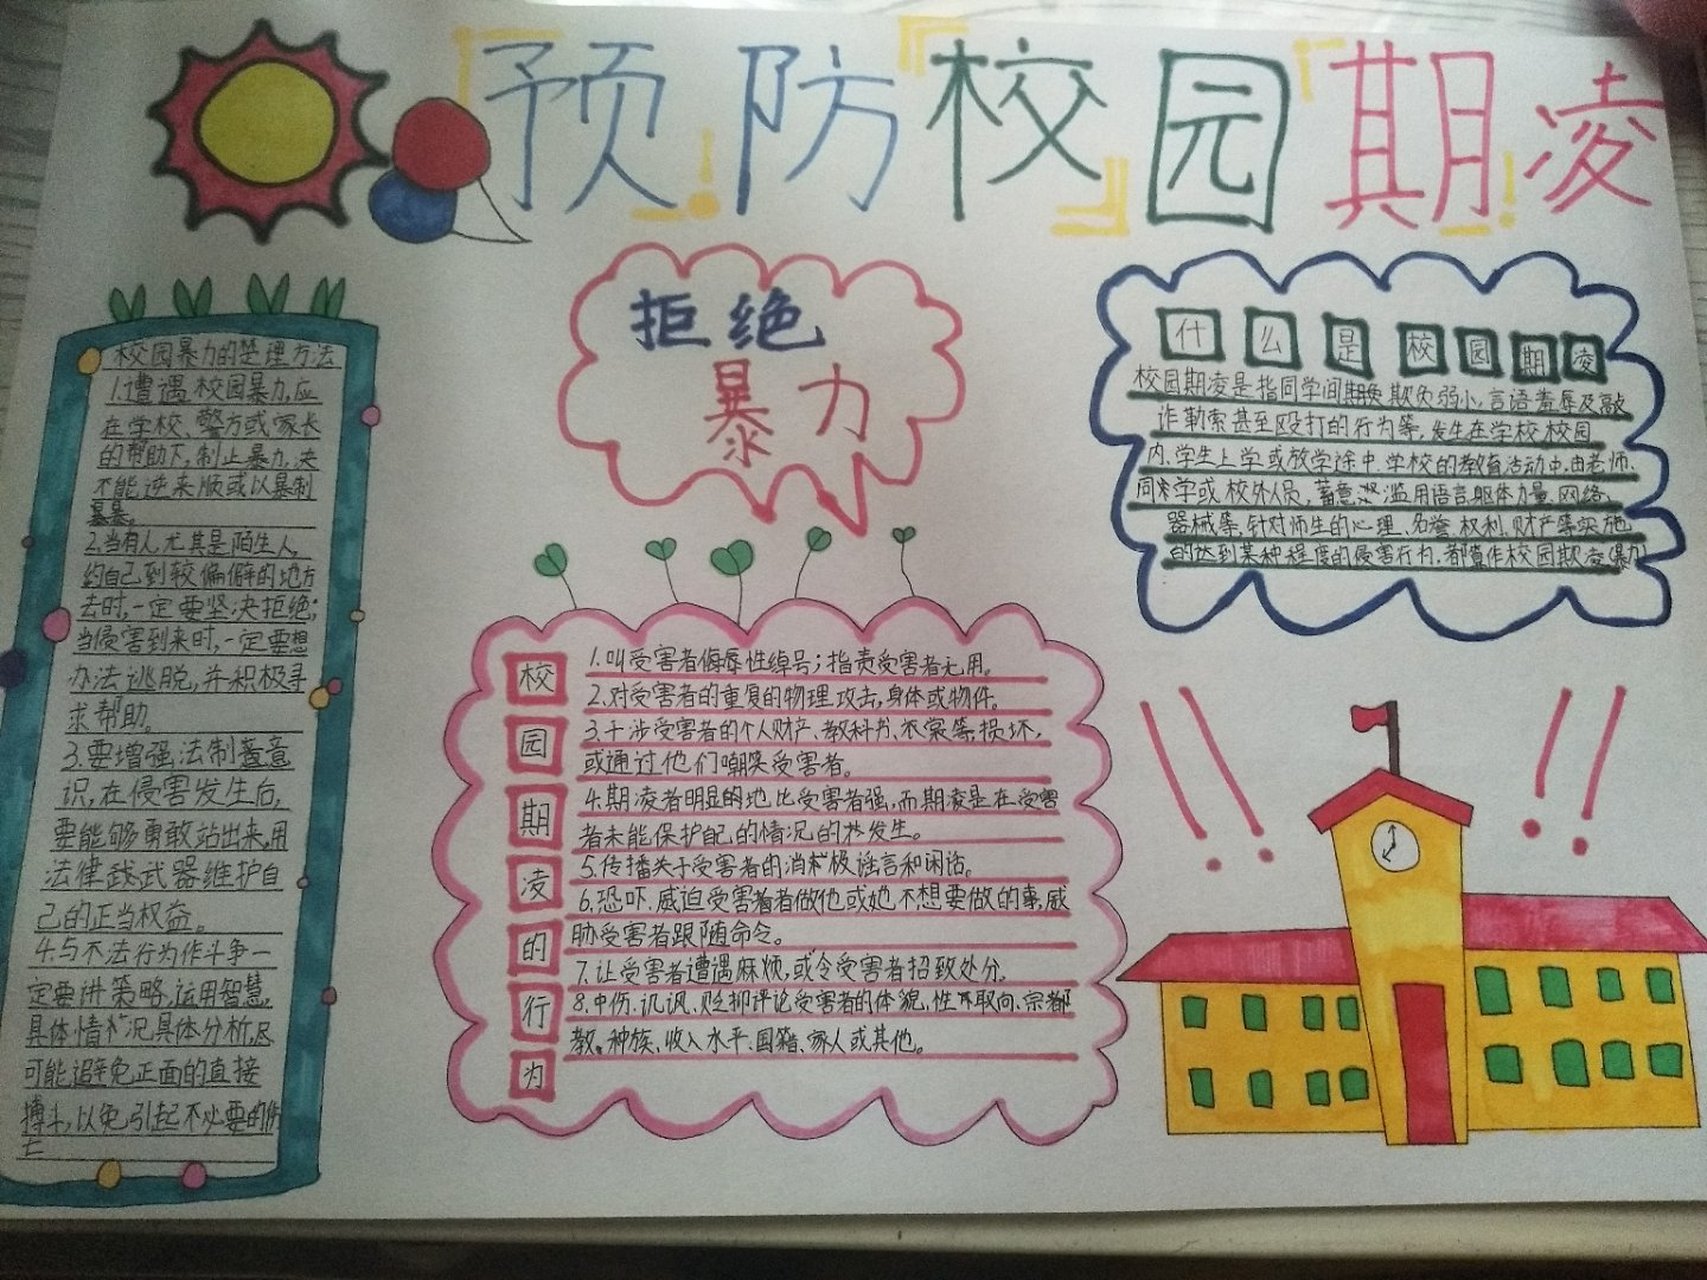 预防校园期凌
拒绝
暴力
校园暴力的处理方法
1.遭遇校园暴力,应
在学校、警方或家长
的帮助下,制止暴力,决
不能逆来顺或以暴制
暴。
2.当有人,尤其是陌生人,
约自己到较偏僻的地方
去时,一定要坚决拒绝;
当侵害到来时,一定要想
办法逃脱,并积极寻
求帮助。
3.要增强法制意
识,在侵害发生后,
要能够勇敢站出来,用
法律武器维护自
己的正当权益。
4.与不法行为作斗争一
定要讲策略,运用智慧,
具体情况具体分析,尽
可能避免正面的直接
搏斗,以免引起不必要的伤
亡
校园期凌的行为
1.叫受害者侮辱性绰号;指责受害者无用。
2.对受害者的重复的物理攻击,身体或物件。
3.干涉受害者的个人财产、教科书、衣裳等,损坏,
或通过他们嘲笑受害者。
4.期凌者明显的地比受害者强,而期凌是在受害
者未能保护自己的情况的发生。
5.传播关于受害者的消极谣言和闲话。
6.恐吓、威迫受害者做他或她不想要做的事,威
胁受害者跟随命令。
7.让受害者遭遇麻烦,或令受害者招致处分。
8.中伤、讥讽、贬抑评论受害者的体貌、性取向、宗
教、种族、收入水平、国籍、家人或其他。
什么是校园期凌
校园期凌是指同学间欺负弱小、言语羞辱及敲
诈勒索甚至殴打的行为等,发生在学校校园
内、学生上学或放学途中、学校的教育活动中,由老师、
同学或校外人员,蓄意滥用语言、躯体力量、网络、
器械等,针对师生的心理、名誉、权利、财产等实施
的达到某种程度的侵害行为,都算作校园欺凌(暴力)